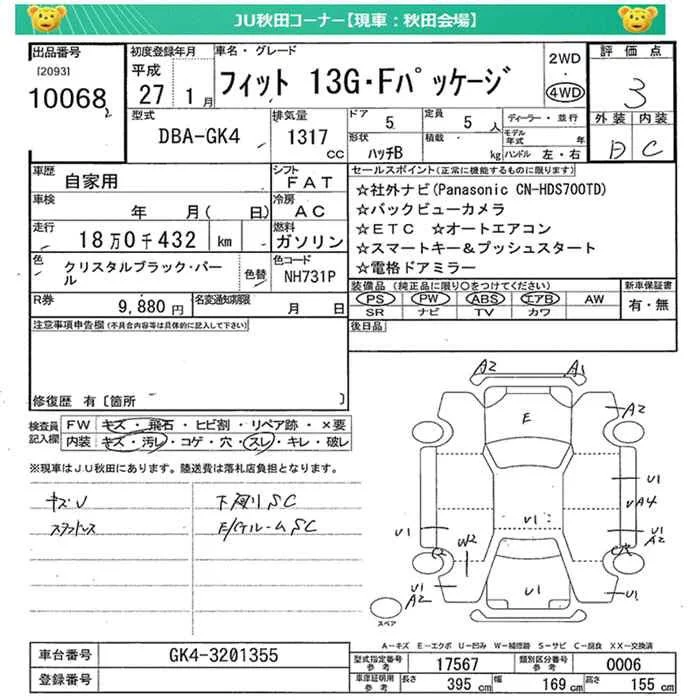 JU秋田コーナー【現車：秋田会場】
出品番号
[2093]
10068
初度登録年月
平成
27 1月
車名・グレード
フィット 13G・Fパッケージ
2WD
・
4WD
評価点
3
外装 内装
D C
型式
DBA-GK4
排気量
1317
cc
ドア 5
定員 5 人
形状 ハッチB
積載 kg
ディーラー・並行
モデル年式 年
ハンドル 左・右
車歴 自家用
シフト FAT
車検 年 月( 日)
冷房 AC
走行 18万0千432 km
燃料 ガソリン
色 クリスタルブラック・パール
色替
色コード NH731P
R券 9,880円
名変通知期限 月 日
セールスポイント(正常に機能するものに限ります)
☆社外ナビ(Panasonic CN-HDS700TD)
☆バックビューカメラ
☆ETC ☆オートエアコン
☆スマートキー&プッシュスタート
☆電格ドアミラー
装備品 (純正品に限り○をつけてください)
PS PW ABS エアB AW
SR ナビ TV カワ
新車保証書
有・無
後日品
注意事項申告欄(不具合内容等は具体的に記入して下さい)
修復歴 有〔箇所 〕
検査員記入欄
FW キズ・飛石・ヒビ割・リペア跡・×要
内装 キズ・汚レ・コゲ・穴・スレ・キレ・破レ
※現車はJU秋田にあります。陸送費は落札店負担となります。
キズU
下回りSC
E/GルームSC
A2 A1
A2
E
U1
UA4
U1
A2
U1
U1
W2
C2
U1
A2
U1
スペア
A－キズ E－エクボ U－凹み W－補修跡 S－サビ C－腐食 XX－交換済
車台番号 GK4-3201355
登録番号
型式指定番号 参考 17567
類別区分番号 参考 0006
車庫証明用 参考 長さ 395 cm 幅 169 cm 高さ 155 cm